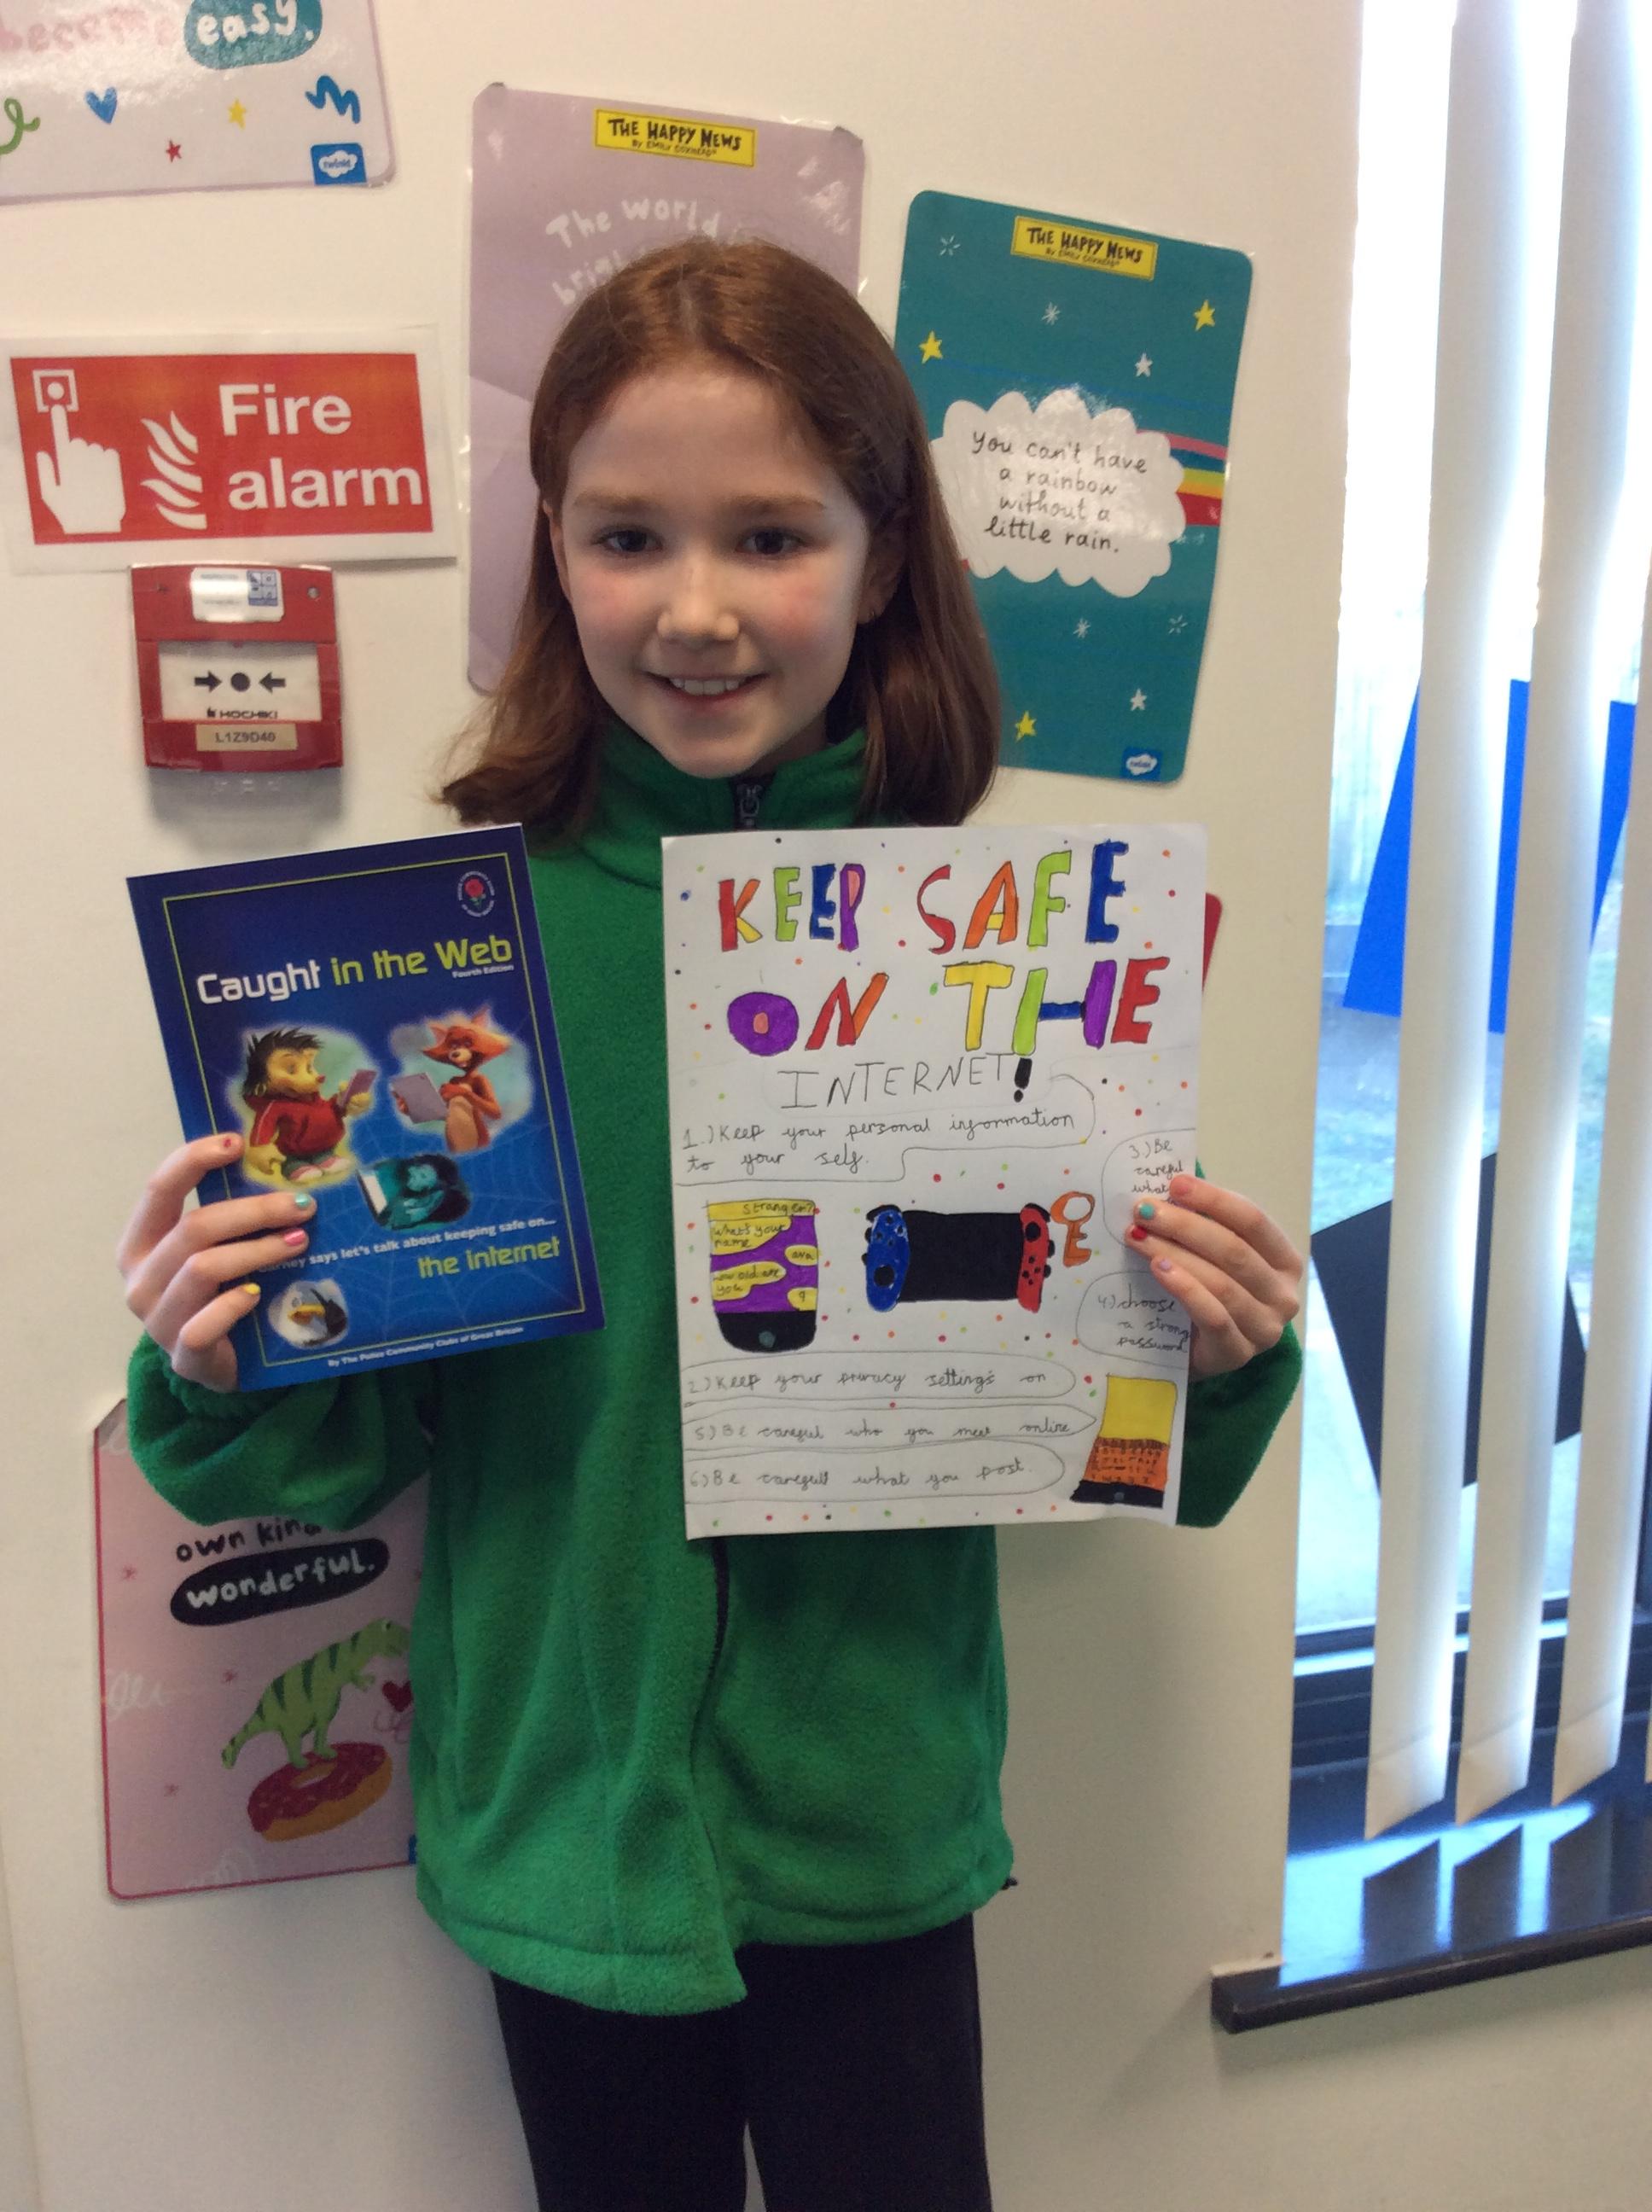 become easy.
twinkl
THE HAPPY NEWS
The world is
THE HAPPY NEWS
You can't have
a rainbow
without a
little rain.
twinkl
Fire
alarm
HOCHIKI
L1Z9D40
Caught in the Web
Fourth Edition
says let's talk about keeping safe on...
the internet
By The Police Community Clubs of Great Britain
KEEP SAFE
ON THE
INTERNET!
1.) Keep your personal information
to your self.
3.) Be
careful
what
stranger?
What's your
name
ava
how old are
you
9
4) choose
a strong
password
2) Keep your privacy setting's on
5) Be careful who you meet online
6) Be carefull what you post.
own kind
wonderful.